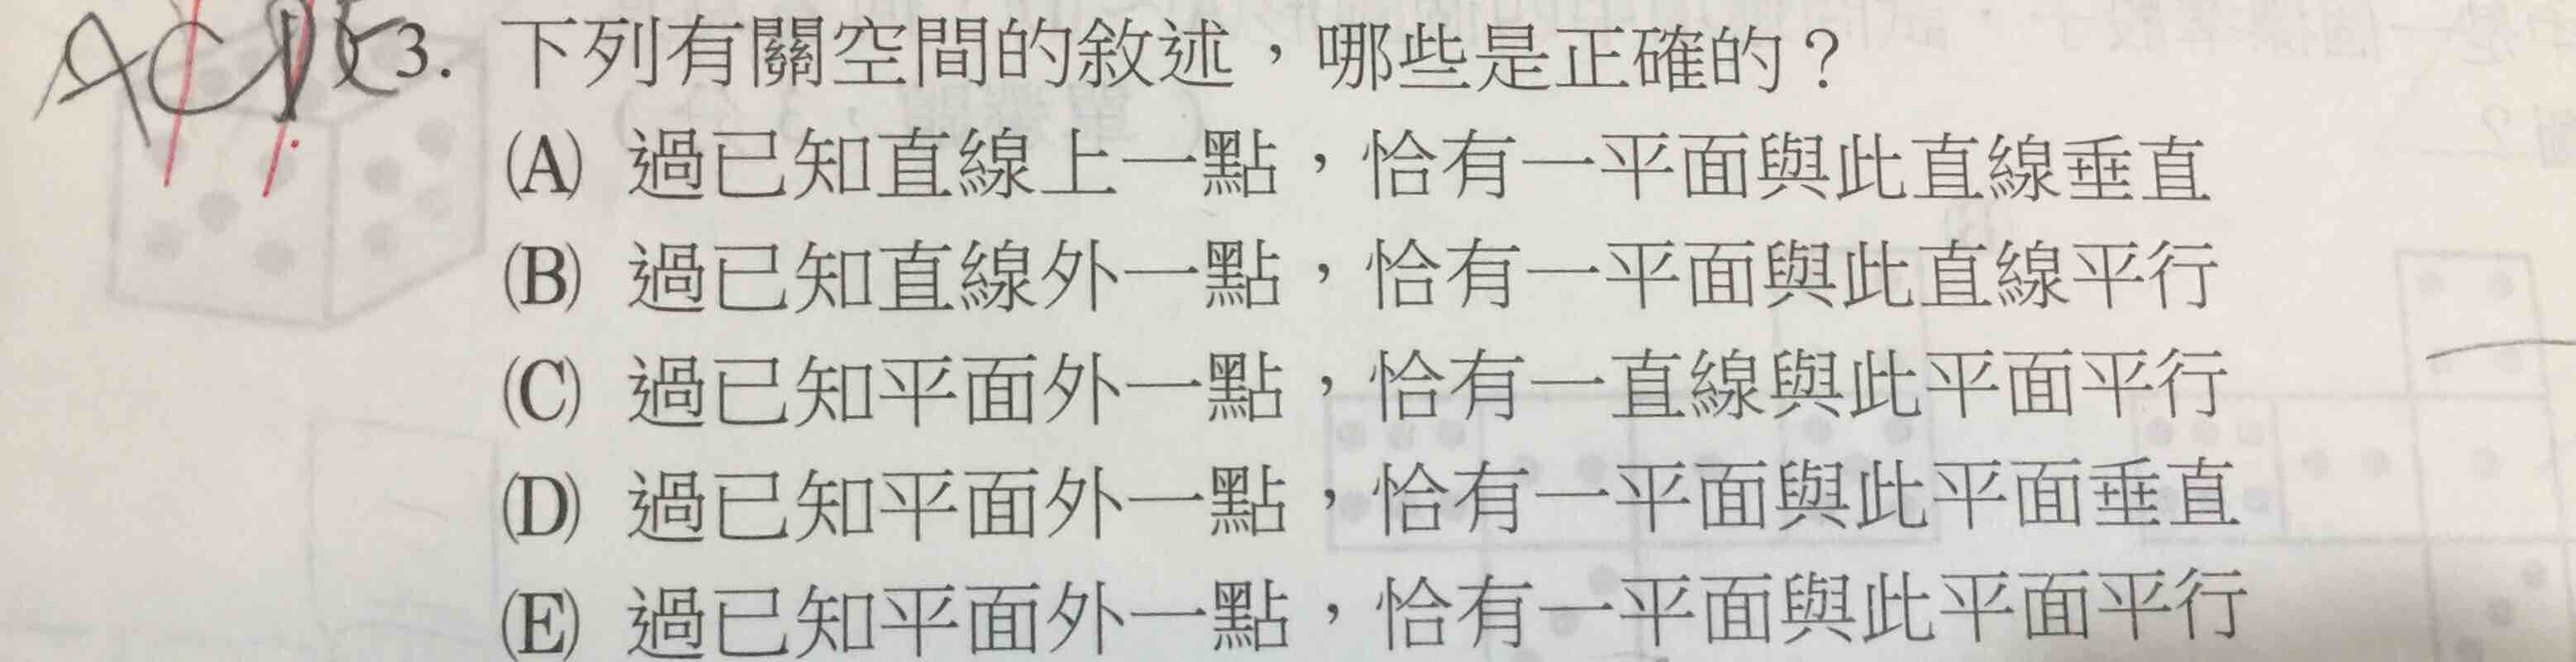 ACDE 3. 下列有關空間的敘述，哪些是正確的？
(A) 過已知直線上一點，恰有一平面與此直線垂直
(B) 過已知直線外一點，恰有一平面與此直線平行
(C) 過已知平面外一點，恰有一直線與此平面平行
(D) 過已知平面外一點，恰有一平面與此平面垂直
(E) 過已知平面外一點，恰有一平面與此平面平行